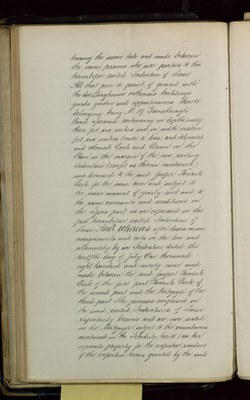 bearing the same date and made between
the same persons who are parties to the
hereinbefore recited Indenture of Lease
All that piece or parcel of ground with
the dwellinghouse outhouses buildings
yards garden and appurtenances thereto
belonging being No 19
Road aforesaid containing in depth
feet six inches and in width sixteen
feet six inches more or less and delineated
and coloured Pink and Brown in the
Plan in the margin of the now reciting
Indenture (except as therein mentioned)
was demised to the said Jasper
Clark for the same term and subject to
the same amount of yearly rent and to
the same covenants and conditions in
the as are expressed in the
last hereinbefore recited Indenture of
Lease And whereas after divers mesne
assignments and acts in the law and
ultimately by an Indenture dated the
twelfth day of July One thousand
eight hundred and ninety nine and
made between the said Jasper
Clark of the first part Clark of
the second part and the Mortgagor of the
third part The premises comprised in
the said recited Indentures of Lease
respectively became and are now vested
in the Mortgagor subject to the incumbrances
mentioned in the Schedule hereto as her
separate property for the respective residues
of the respective terms granted by the said